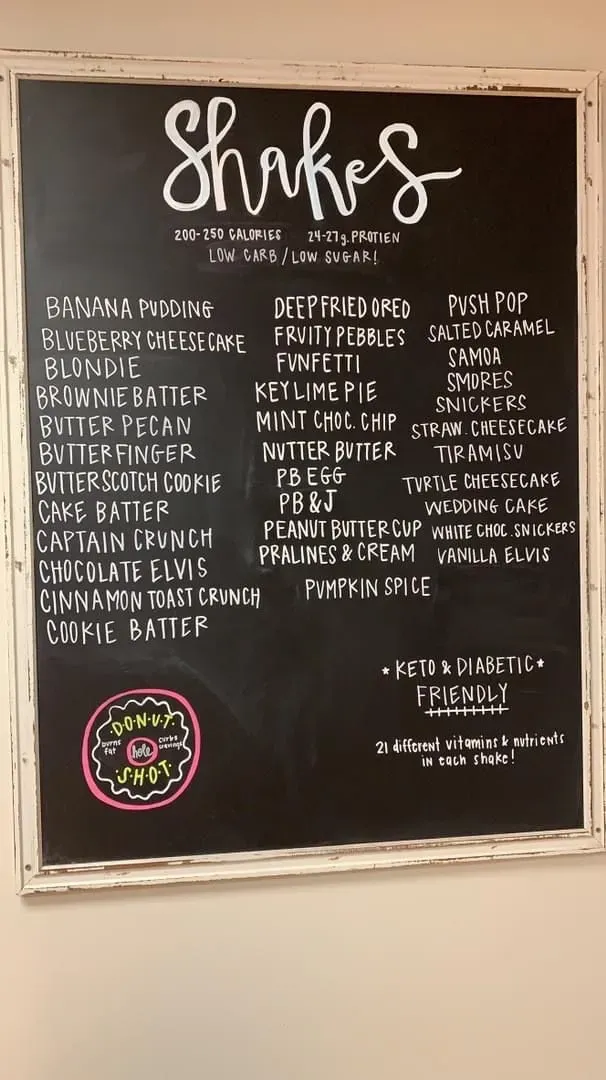 Shakes
200-250 CALORIES 24-27g. PROTIEN
LOW CARB / LOW SUGAR!
BANANA PUDDING
BLUEBERRY CHEESECAKE
BLONDIE
BROWNIE BATTER
BUTTER PECAN
BUTTERFINGER
BUTTERSCOTCH COOKIE
CAKE BATTER
CAPTAIN CRUNCH
CHOCOLATE ELVIS
CINNAMON TOAST CRUNCH
COOKIE BATTER
DEEP FRIED OREO
FRUITY PEBBLES
FUNFETTI
KEY LIME PIE
MINT CHOC. CHIP
NUTTER BUTTER
PB EGG
PB & J
PEANUT BUTTER CUP
PRALINES & CREAM
PUMPKIN SPICE
PUSH POP
SALTED CARAMEL
SAMOA
SMORES
SNICKERS
STRAW. CHEESECAKE
TIRAMISU
TURTLE CHEESECAKE
WEDDING CAKE
WHITE CHOC. SNICKERS
VANILLA ELVIS
* KETO & DIABETIC *
FRIENDLY
21 different vitamins & nutrients
in each shake!
·D·O·N·U·T·
burns fat
hole
curbs cravings
·S·H·O·T·